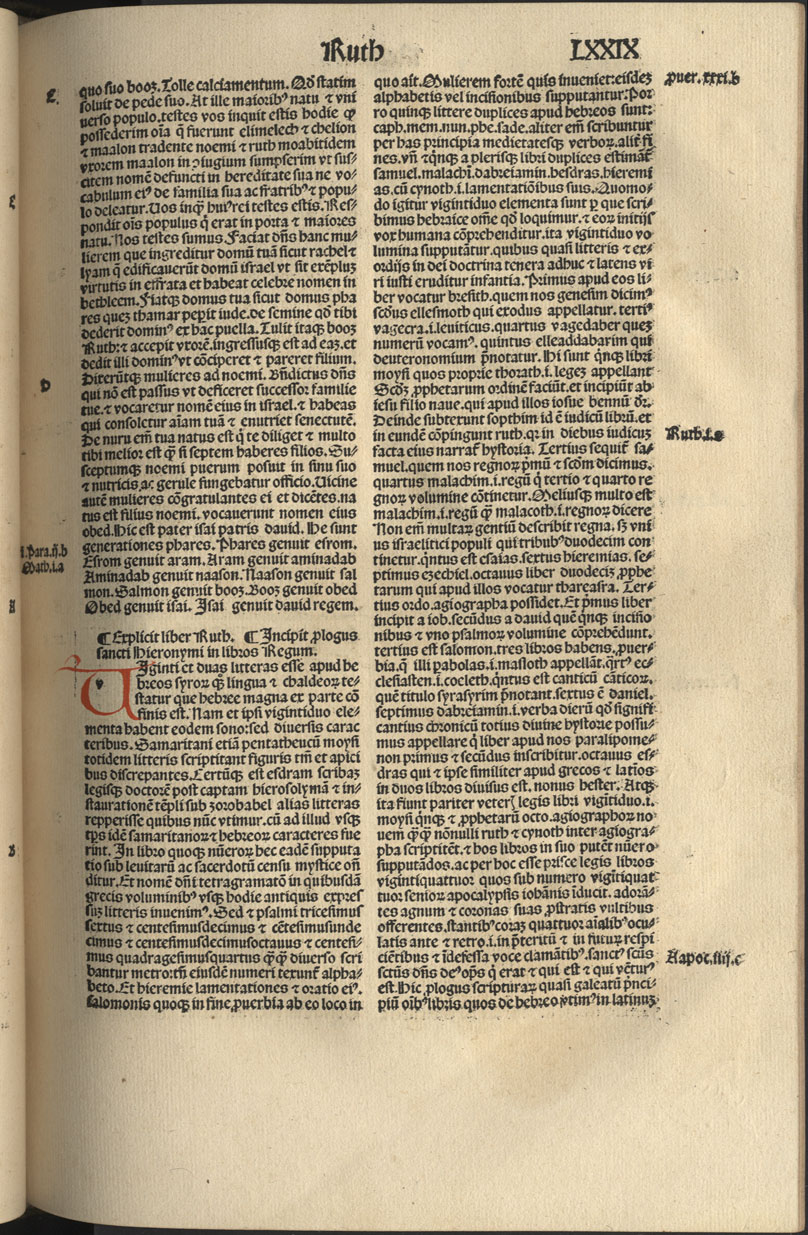 Ruth
LXXIX
C
quo suo booz. Tolle calciamentum. Qd̄ statim
soluit de pede suo. At ille maioribꝰ natu ⁊ vni
verso populo. testes vos inquit estis hodie ꝙ
possederim oīa q̄ fuerunt elimelech ⁊ chelion
⁊ maalon tradente noemi ⁊ ruth moabitidem
vxorem maalon in ꝯiugium sumpserim vt sus/
citem nomē defuncti in hereditate sua ne vo/
cabulum eiꝰ de familia sua ac fratribꝰ ⁊ popu/
lo deleatur. Uos inq̄ huiꝰ rei testes estis. Res/
pondit oīs populus q̄ erat in porta ⁊ maiores
natu. Nos testes sumus. Faciat dn̄s hanc mu/
lierem que ingreditur domū tuā sicut rachel ⁊
lyam q̄ edificauerūt domū israel vt sit exēpluꝫ
virtutis in effrata et habeat celebre nomen in
bethleem. Fiatqꝫ domus tua sicut domus pha
res queꝫ thamar peꝑit iude. de semine qd̄ tibi
dederit dominꝰ ex hac puella. Tulit itaqꝫ booz
Ruth: ⁊ accepit vxorē. ingressusqꝫ est ad eaꝫ. et
D
dedit illi dominꝰ vt cōciperet ⁊ pareret filium.
Dixerūtqꝫ mulieres ad noemi. Bn̄dictus dn̄s
qui nō est passus vt deficeret successor familie
tue. ⁊ vocaretur nomē eius in israel. ⁊ habeas
qui consoletur aīam tuā ⁊ enutriet senectutē.
De nuru em̄ tua natus est q̄ te diliget ⁊ multo
tibi melior est q̄ꝫ si septem haberes filios. Su/
sceptumqꝫ noemi puerum posuit in sinu suo
⁊ nutricis ac gerule fungebatur officio. Uicine
autē mulieres cōgratulantes ei et dicētes. na
tus est filius noemi. vocauerunt nomen eius
obed. Hic est pater isai patris dauid. He sunt
i.Para.ij.b
Math.i.a
generationes phares. Phares genuit esrom.
Esrom genuit aram. Aram genuit aminadab
Aminadab genuit naason. Naason genuit sal
mon. Salmon genuit booz. Booz genuit obed
Obed genuit isai. Isai genuit dauid regem.
¶ Explicit liber Ruth. ¶ Incipit ꝓlogus
sancti Hieronymi in libros Regum.
UIginti et duas litteras esse apud he
breos syroꝝ qꝫ lingua ⁊ chaldeoꝝ te/
statur que hebree magna ex parte cō
finis est. Nam et ipsi vigintiduo ele/
menta habent eodem sono: sed diuersis carac
teribus. Samaritani etiā pentatheucū moysi
totidem litteris scriptitant figuris tm̄ et apici
bus discrepantes. Certūqꝫ est esdram scribaꝫ
legisqꝫ doctorē post captam hierosolymā ⁊ in/
staurationē tēpli sub zorobabel alias litteras
repperisse quibus nūc vtimur. cū ad illud vsqꝫ
tꝑs idē samaritanoꝝ ⁊ hebreoꝝ caracteres fue
rint. In libro quoqꝫ nūeroꝝ hec eadē supputa
tio sub leuitarū ac sacerdotū censu mystice oſt̄
ditur. Et nomē dn̄i tetragramatō in quibusdā
grecis voluminibꝰ vsqꝫ hodie antiquis expres
suꝫ litteris inuenimꝰ. Sed ⁊ psalmi tricesimus
sextus ⁊ centesimusdecimus ⁊ cētesimusunde
cimus ⁊ centesimusdecimusoctauus ⁊ centesi/
mus quadragesimusquartus q̄ꝙ̄ diuerso scri
bantur metro: tn̄ eiusdē numeri texunt̄ alpha/
beto. Et hieremie lamentationes ⁊ oratio eiꝰ.
salomonis quoqꝫ in fine ꝓuerbia ab eo loco in
quo ait. Mulierem fortē quis inueniet: eisdeꝫ
puer.xxxi.b
alphabetis vel incisionibus supputantur. Por
ro quinqꝫ littere duplices apud hebreos sunt:
caph. mem. nun. phe. sade. aliter em̄ scribuntur
per has principia medietatesqꝫ verboꝝ. alit̄ fi
nes. vn̄ ⁊ q̄nqꝫ a plerisqꝫ libri duplices estimāt̄
samuel. malachī. dabreiamin. hesdras. hieremi
as. cū cynoth. i. lamentatiōibus suis. Quomo/
do igitur vigintiduo elementa sunt ꝑ que scri/
bimus hebraice om̄e qd̄ loquimur. ⁊ eoꝝ initijs
vox humana cōprehenditur. ita vigintiduo vo/
lumina supputātur. quibus quasi litteris ⁊ ex/
ordijs in dei doctrina tenera adhuc ⁊ latens vi
ri iusti eruditur infantia. Primus apud eos li/
ber vocatur bresith. quem nos genesim dicimꝰ
scd̄us ellesmoth qui exodus appellatur. tertiꝰ
vagecra. i. leuiticus. quartus vagedaber queꝫ
numerū vocamꝰ. quintus elleaddabarim qui
deuteronomium p̄notatur. Hi sunt q̄nqꝫ libri
moysi quos proprie thorath. i. legeꝫ appellant
Scd̄ꝫ ꝓphetarum ordinē faciūt. et incipiūt ab
iesu filio naue. qui apud illos iosue bennū dr̄.
Deinde subtexunt sopthim id ē iudicū librū. et
Ruth.i.a
in eundē cōpingunt ruth. qꝛ in diebus iudicuꝫ
facta eius narrat̄ hystoria. Tertius sequit̄ sa/
muel. quem nos regnoꝝ p̄mū ⁊ scd̄m dicimus.
quartus malachim. i. regū q̄ tertio ⁊ quarto re
gnoꝝ volumine cōtinetur. Meliusqꝫ multo est
malachim. i. regū q̄ꝫ malacoth. i. regnoꝝ dicere
Non em̄ multaꝝ gentiū describit regna. sꝫ vni
us israelitici populi qui tribubꝰ duodecim con
tinetur. q̄ntus est esaias. sextus hieremias. se/
ptimus ezechiel. octauus liber duodeciꝫ ꝓphe
tarum qui apud illos vocatur thareasra. Ter/
tius ordo. agiographa possidet. Et p̄mus liber
incipit a iob. secūdus a dauid quē q̄nqꝫ incisio
nibus ⁊ vno psalmoꝝ volumine cōprehēdunt.
tertius est salomon. tres libros habens. ꝓuer/
bia. q̄ illi ꝑabolas. i. masloth appellāt. q̄rtꝰ ec/
clesiasten. i. coeleth. q̄ntus est canticū cāticoꝝ.
quē titulo syrasyrim p̄notant. sextus ē daniel.
septimus dabreiamin. i. verba dierū qd̄ signifi
cantius chronicū totius diuine hystorie possu/
mus appellare q̄ liber apud nos paralipome/
non primus ⁊ secūdus inscribitur. octauus es/
dras qui ⁊ ipse similiter apud grecos ⁊ latios
in duos libros diuisus est. nonus hester. Atqꝫ
ita fiunt pariter veteꝝ legis libri vigītiduo. i.
moysi q̄nqꝫ ⁊ ꝓphetarū octo. agiographoꝝ no
uem q̄ꝙ̄ nōnulli ruth ⁊ cynoth inter agiogra/
pha scriptitēt. ⁊ hos libros in suo putēt nūero
supputādos. ac per hoc esse prisce legis libros
vigintiquattuor quos sub numero vigītiquat
tuor senioꝝ apocalypsis iohānis īducit. adorā/
tes agnum ⁊ coronas suas ꝓstratis vultibus
offerentes. stantibꝰ coraꝫ quattuor aīalibꝰ ocu/
latis ante ⁊ retro. i. in p̄teritū ⁊ in futuꝝ respi
Aapoc.iiij.c
ciētibus ⁊ īdefessa voce clamātibꝰ. sanctꝰ scūs
sctūs dn̄s deꝰ oꝑs q̄ erat ⁊ qui est ⁊ qui vētur̄
est. Hic ꝓlogus scripturaꝝ quasi galeatū p̄nci/
piū oībꝰ libris quos de hebreo v̄timꝰ in latinuꝫ